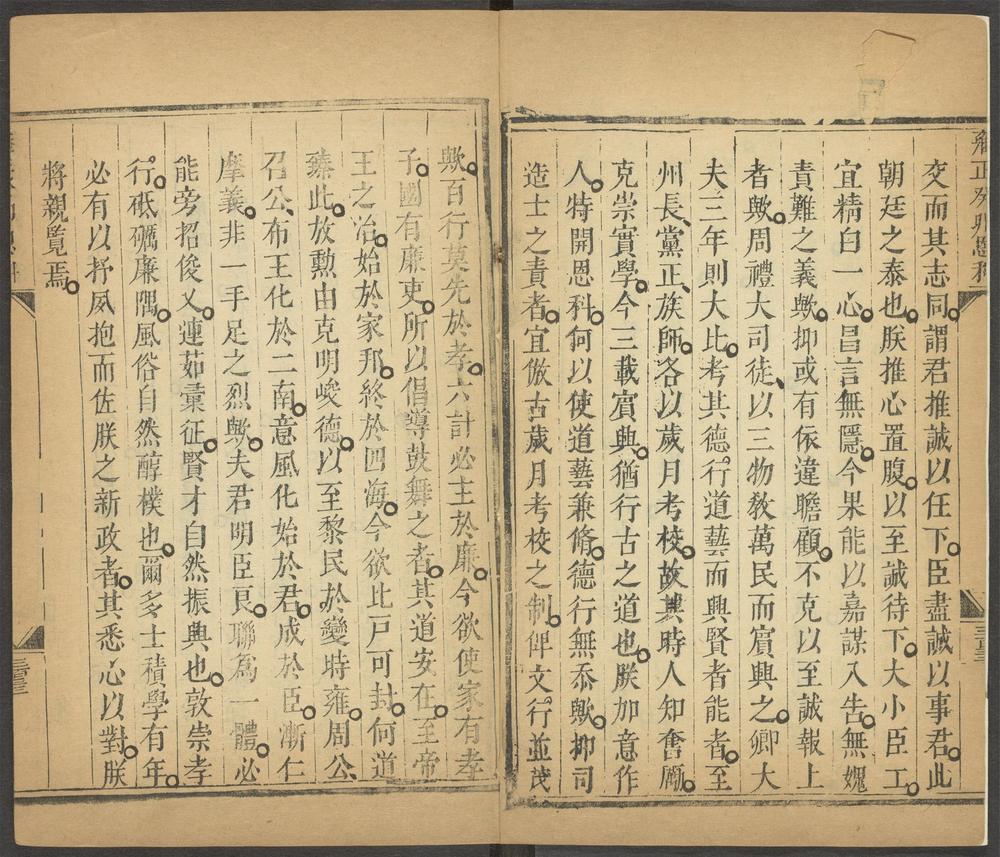 雍正癸卯恩科
交而其志同。謂君推誠以任下。臣盡誠以事君。此
朝廷之泰也。朕推心置腹。以至誠待下。大小臣工。
宜精白一心。昌言無隱。今果能以嘉謀入告。無媿
責難之義歟。抑或有依違瞻顧。不克以至誠報上
者歟。周禮大司徒、以三物敎萬民而賓興之。卿大
夫三年則大比。考其德行道藝而興賢者能者。至
州長、黨正、族師。各以歲月考校。故其時人知奮勵。
克崇實學。今三載賓興。猶行古之道也。朕加意作
人。特開恩科。何以使道藝兼脩。德行無忝歟。抑司
造士之責者。宜倣古歲月考校之制。俾文行並茂
歟。百行莫先於孝。六計必主於廉。今欲使家有孝
子。國有廉吏。所以倡導鼓舞之者。其道安在。至帝
王之治。始於家邦。終於四海。今欲比戸可封。何道
臻此。放勳由克明峻德。以至黎民於變時雍。周公、
召公、布王化於二南。意風化始於君。成於臣。漸仁
摩義。非一手足之烈歟。夫君明臣良。聯為一體。必
能旁招俊乂。連茹彙征。賢才自然振興也。敦崇孝
行。砥礪廉隅。風俗自然醇樸也。爾多士積學有年。
必有以抒夙抱而佐朕之新政者。其悉心以對。朕
將親覽焉。